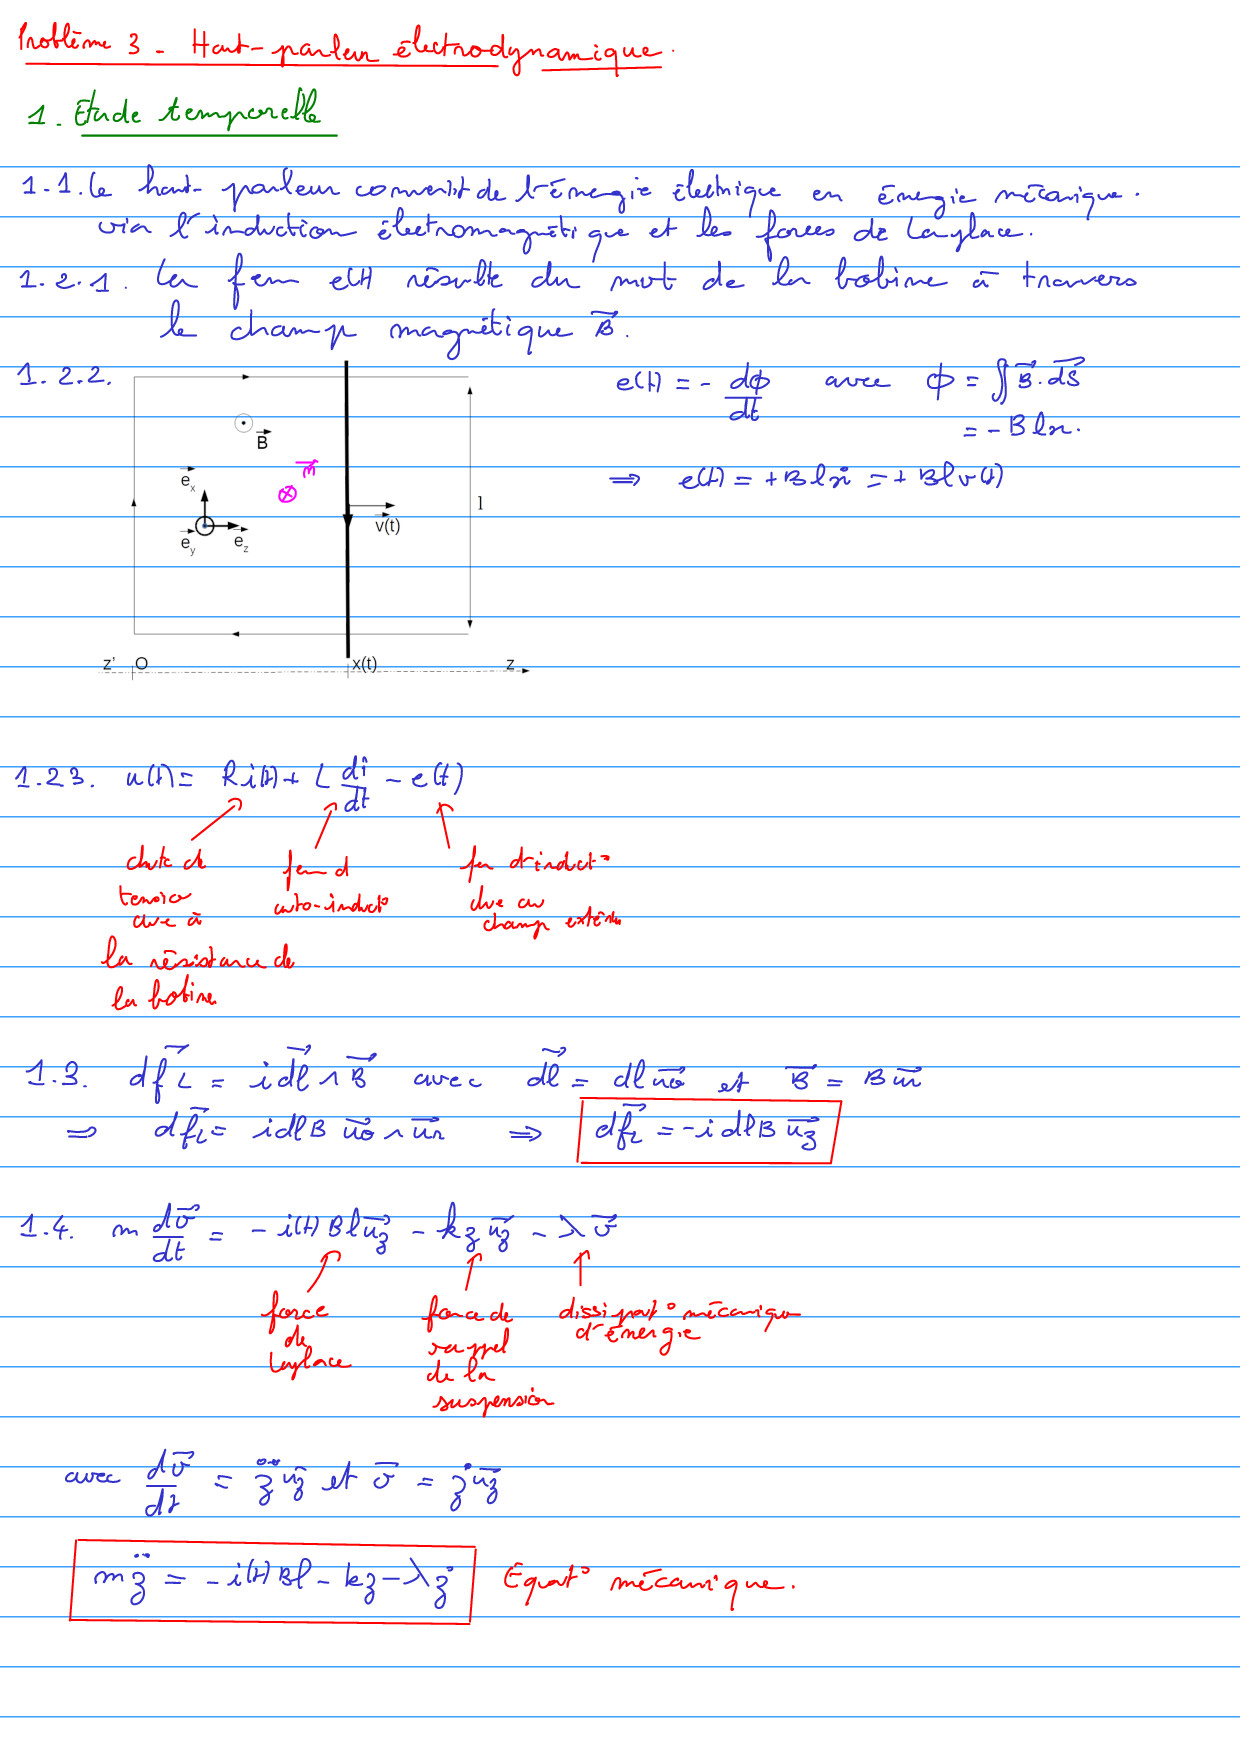 Problème 3 - Haut-parleur électrodynamique.
1. Etude temporelle
1.1. Le haut-parleur convertit de l'énergie électrique en énergie mécanique.
via l'induction électromagnétique et les forces de Laplace.
1.2.1. La fem e(t) résulte du mvt de la bobine à travers
le champ magnétique B⃗.
1.2.2.
e(t) = - dϕ/dt avec ϕ = ∬ B⃗.dS⃗
= - B l x.
⇒ e(t) = + B l ẋ = + B l v(t)
B⃗
n⃗
e⃗x
e⃗y
e⃗z
v⃗(t)
l
z' O x(t) z
1.2.3. u(t) = R i(t) + L di/dt - e(t)
chute de
tension
due à
la résistance de
la bobine
fem d
auto-induct°
fem d'induct°
due au
champ extérieur
1.3. df⃗L = i dl⃗ ∧ B⃗ avec dl⃗ = dl u⃗θ et B⃗ = B u⃗r
⇒ df⃗L = i dl B u⃗θ ∧ u⃗r ⇒ df⃗L = - i dl B u⃗z
1.4. m dv⃗/dt = - i(t) B l u⃗z - k z u⃗z - λ v⃗
force
de
Laplace
force de
rappel
de la
suspension
dissipat° mécanique
d'énergie
avec dv⃗/dt = z̈ u⃗z et v⃗ = ż u⃗z
m z̈ = - i(t) B l - k z - λ ż Equat° mécanique.